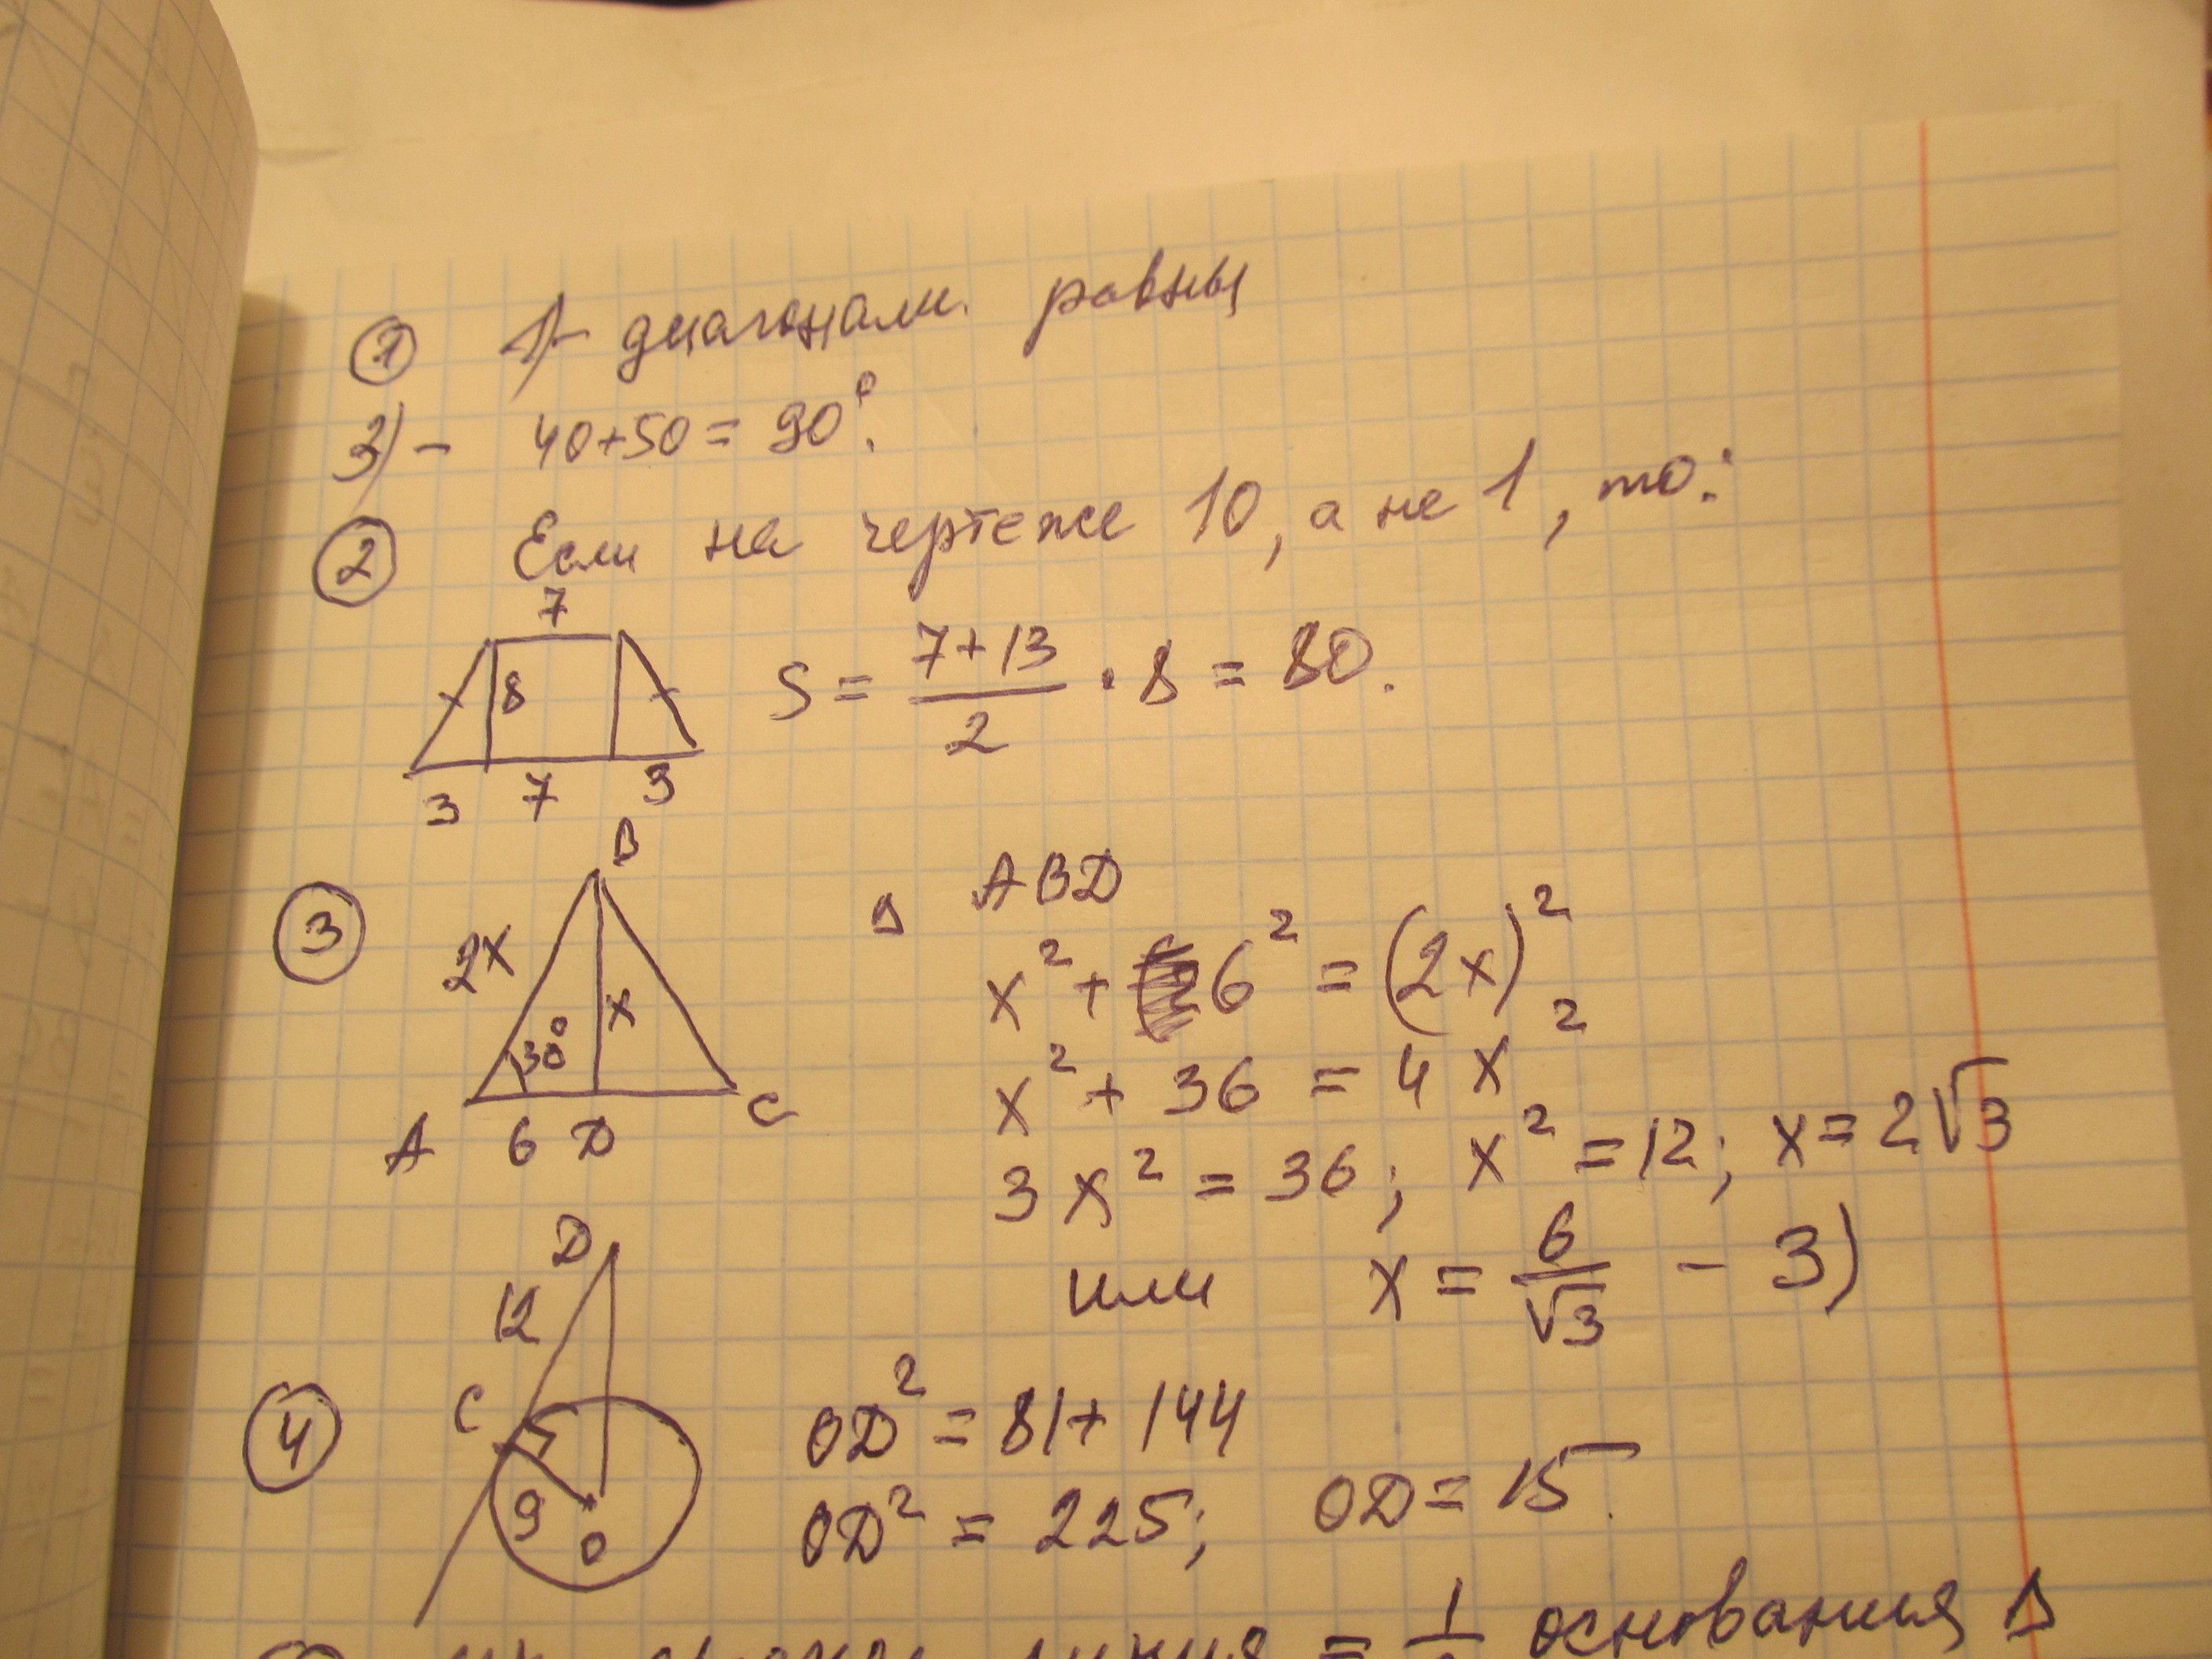 ① 1)- диагонали равны
3)- 40+50=90°.
② Если на чертеже 10, а не 1, то:
7
8
3 7 3
S = (7+13)/2 · 8 = 80.
③
B
2x
x
30°
A 6 D C
Δ ABD
x² + 6² = (2x)²
x² + 36 = 4x²
3x² = 36; x² = 12; x = 2√3
или x = 6/√3 - 3)
④
D
12
C
9
O
OD² = 81 + 144
OD² = 225; OD = 15.
линия = 1 основания Δ